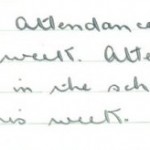 Attendance
week. Atte
in the sch
is week.